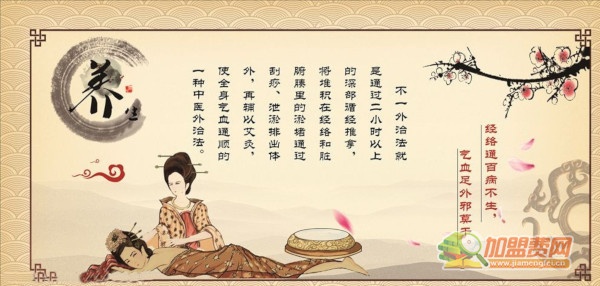 养生
不一外治法就
是通过二小时以上
的深部循经推拿,
将堆积在经络和脏
腑腠里的淤堵通过
刮痧、泄淤排出体
外,再辅以艾灸,
使全身气血通顺的
一种中医外治法。
经络通百病不生,
气血足外邪莫
加盟费网
www.jiamengfei.cn